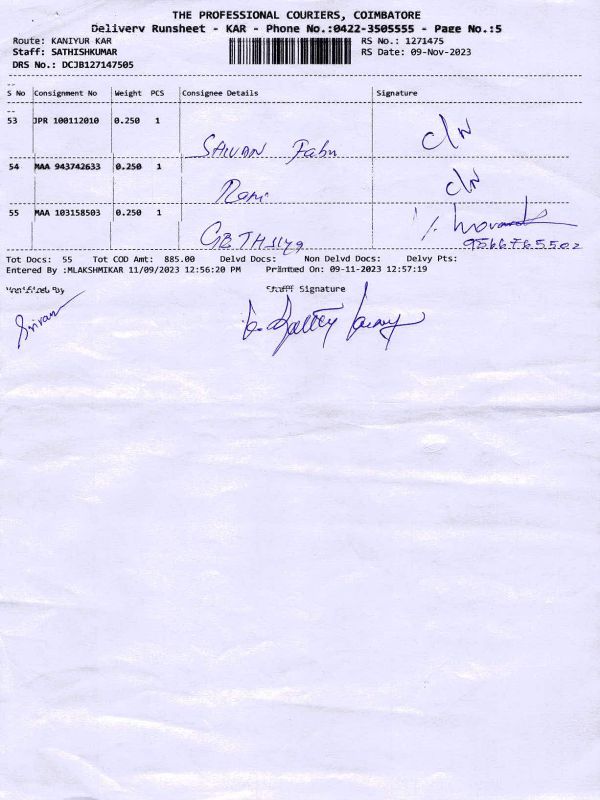 THE PROFESSIONAL COURIERS, COIMBATORE
Delivery Runsheet - KAR - Phone No.:0422-3505555 - Page No.:5
Route: KANIYUR KAR RS No.: 1271475
Staff: SATHISHKUMAR RS Date: 09-Nov-2023
DRS No.: DCJB127147505
S No Consignment No Weight PCS Consignee Details Signature
53 JPR 100112010 0.250 1
c/n
SAIVAN Fabu
54 MAA 943742633 0.250 1
c/n
Rani
55 MAA 103158503 0.250 1
9566765502
Tot Docs: 55 Tot COD Amt: 885.00 Delvd Docs: Non Delvd Docs: Delvy Pts:
Entered By :MLAKSHMIKAR 11/09/2023 12:56:20 PM Printed On: 09-11-2023 12:57:19
Verified By Staff Signature
Sriram